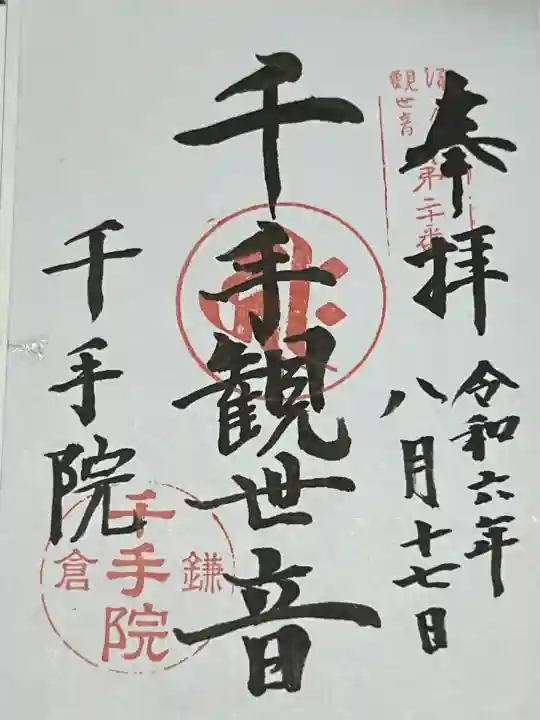 奉拝
令和六年
八月十七日
観世音
第二十番
千手観世音
千手院
鎌倉
千手院